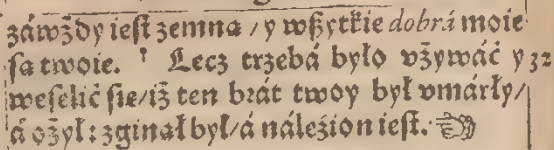 záwżdy ieſt zemna / y wßytkie dobrá moie
ſa twoie. ' Lecz trzebá było vżywáć y 32
weſelić ſie / iż ten brát twoy był vmárły /
á ożył : zginał był / á náleźion ieſt. ☜